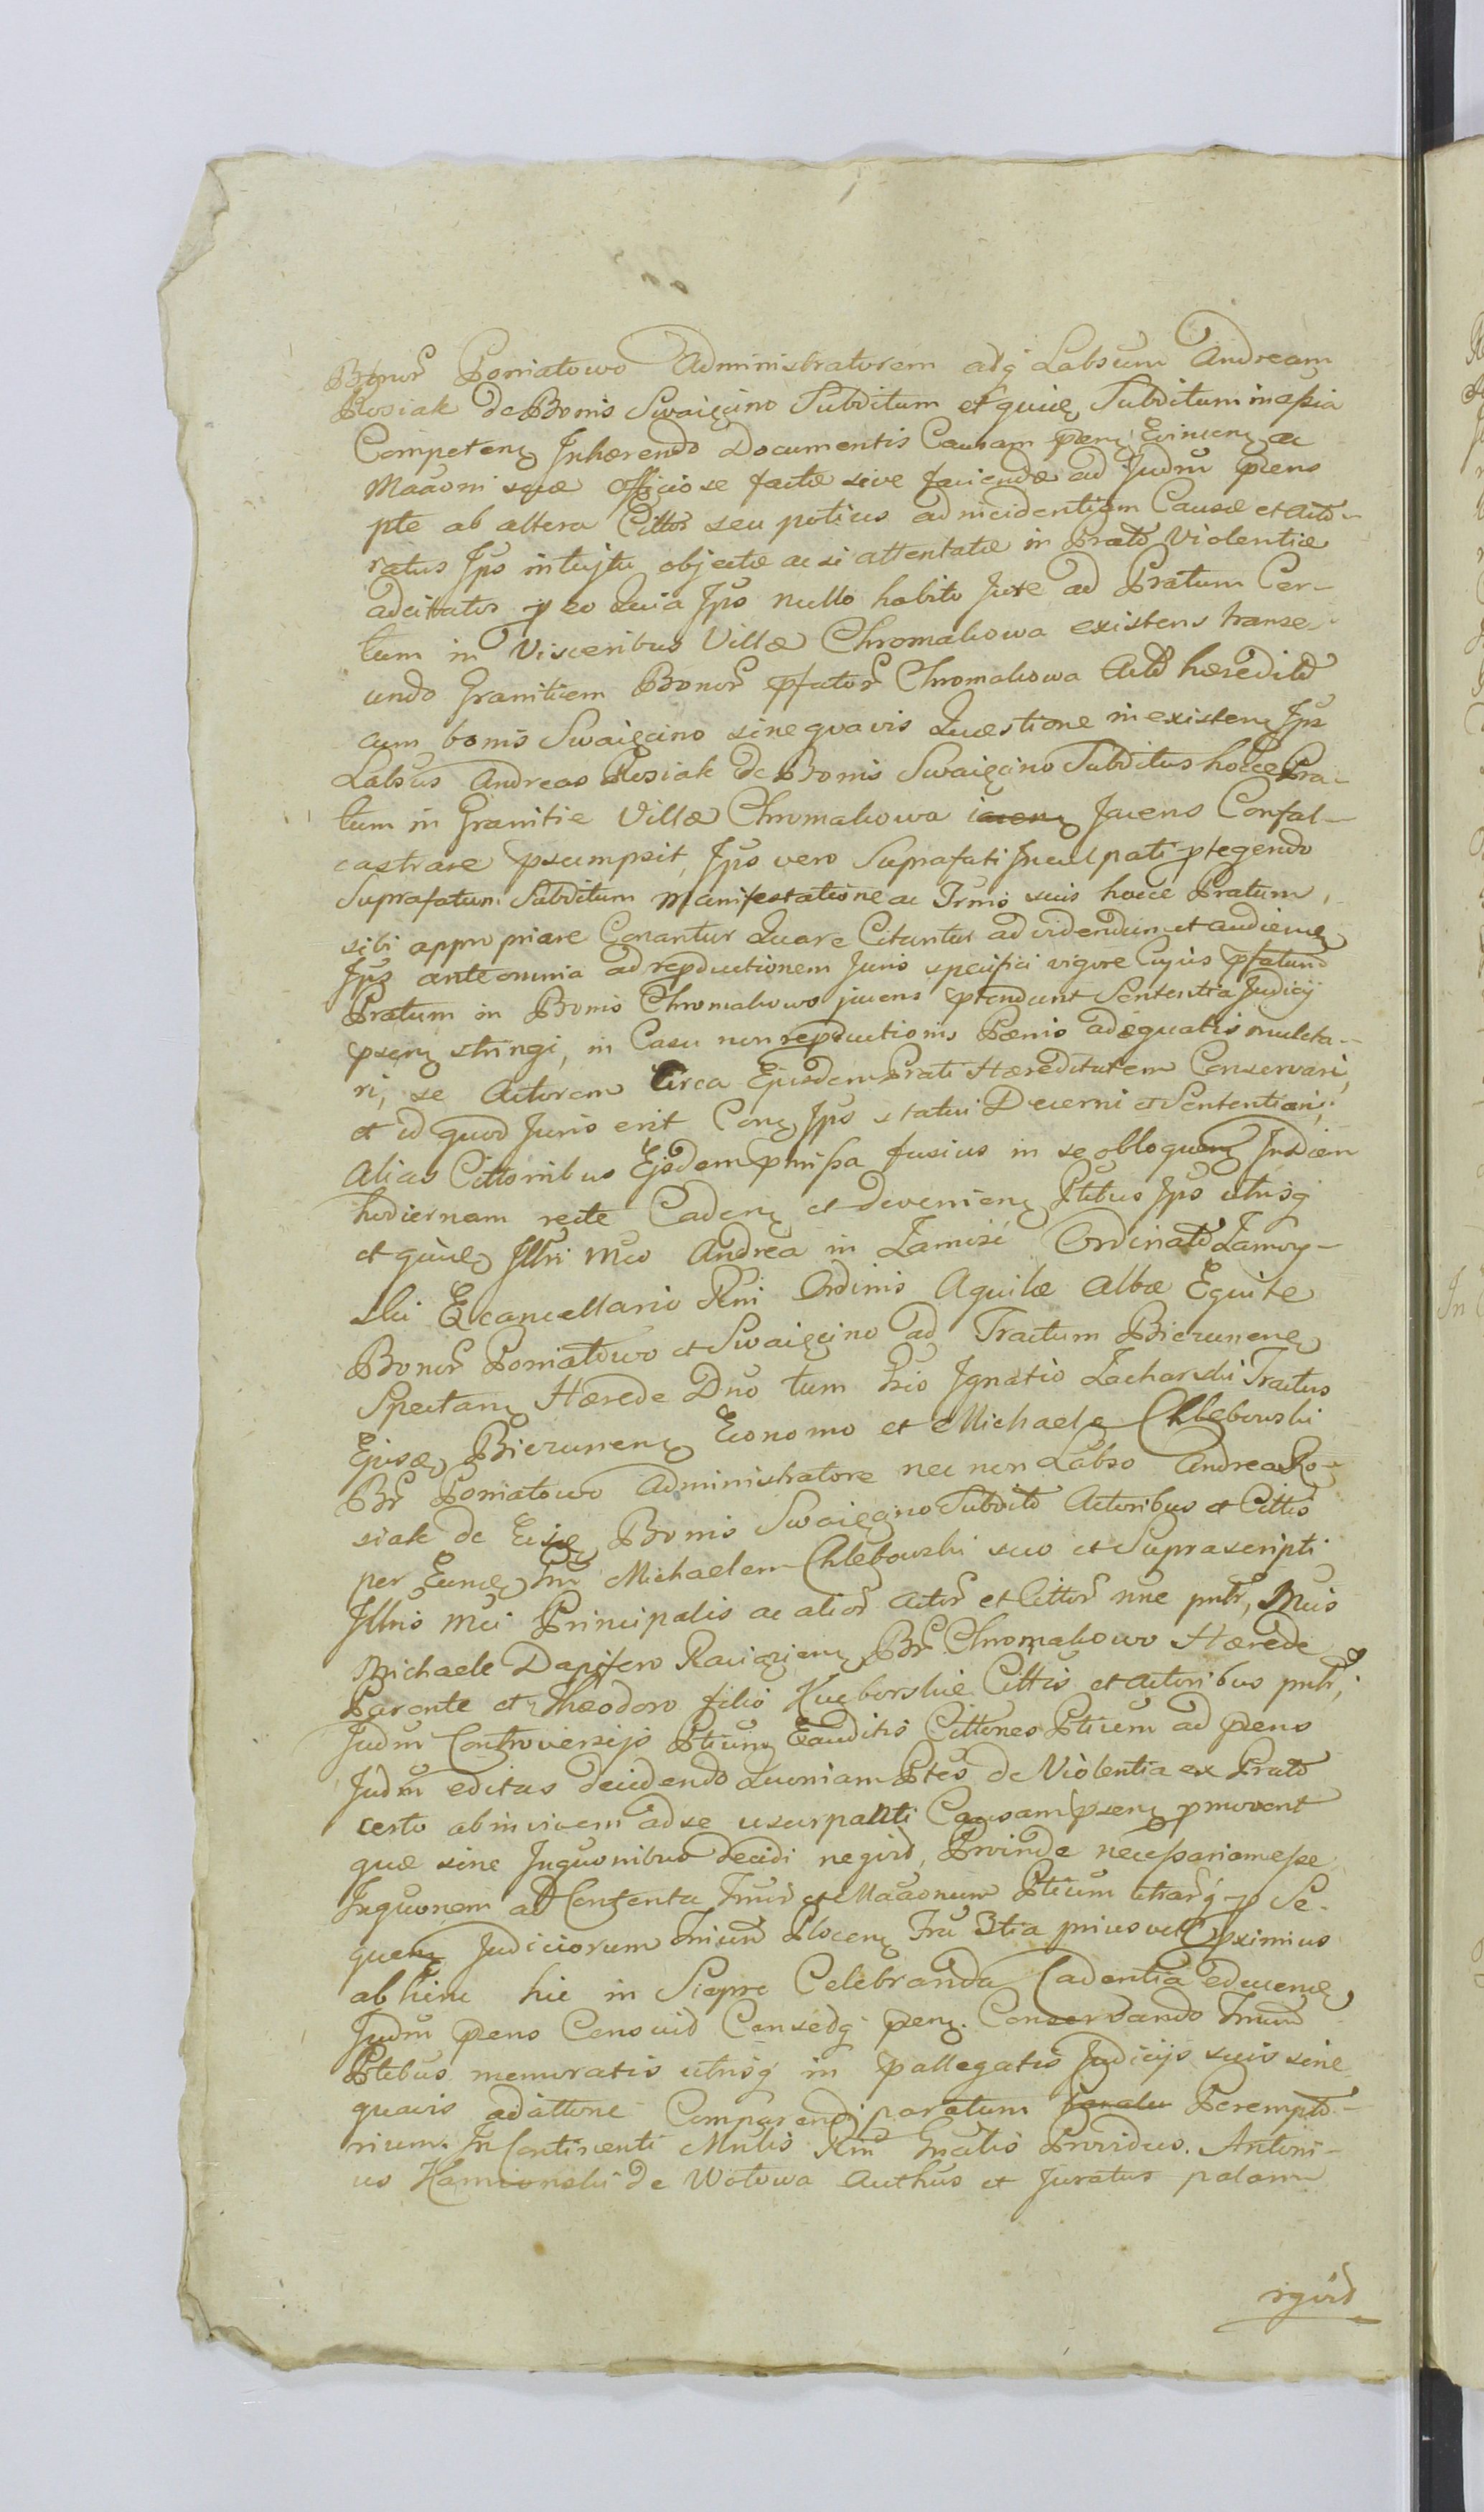 Bonor Poniatowo Administratorem adq Labsum Andream
Rosiak de Bonis Swaięcino Subditum et quiuę Subditum inassia
Competenę Inhærendo Documentis Causam pñenę Evincenę ac
Maãoni suæ officiose factæ sive faciendæ ad Judm p̃ens
pte ab altera Cittos seu potius ad incidentiam Causæ et Acto-
ratus Ips intuitu objectæ ac si attentatæ in Prato Violentiæ
adcittatos p eo Quia Ips nullo habito Jure ad Pratum Cer-
tum in Visceribus Villæ Chromakowa existens transe-
undo Granitiem Bonor pfator Chromakowa Acto hæredito
cum bonis Swaięcino sine quavis Quæstione inexistenę Ips
Labsus Andreas Rosiak de Bonis Swaięcino Subditus hocce Pra-
tum in Granitie Villæ Chromakowa Jacens Confal-
castrare p̃sumpsit, Ips vero Suprafati Inculpati ptegendo
Suprafatum Subditum Manifestatione ac Trmis suis hocce Pratum
sibi appropriare Conantur Quare Citantur ad videndum et audienę
Ips ante omnia ad repductionem Juris specifici vigore Cujus pfatum
Pratum in Bonis Chromakowo jacens ptendunt Sententia Judicij
pñenę stringi, in Casu non repductionis Pænis adæquatis mulcta-
ri, se Actorem Circa Ejusdem Prati Hæreditatem Conservari,
et id quod Juris erit Conę Ips statui Decerni et Sententiari,
alias Cittonibus Ejsdem pmissa fusius in se obloquenę In diem
hodiernam recte Cadenę et devenienę Ptibus Ips utrisq
et quiuę Illri Mco Andrea in Zamość Ordinato Zamoy-
ski Excancellario Rni Ordinis Aquilæ Albæ Equite
Bonor Poniatowo et Swaięcino ad Tractum Bieżunenę
Spectanę Hærede Dno tum Gso Ignatio Zacharski Tractus
Ejusdę Bieżunenę Economo et Michaele Chlebowski
Br Poniatowo Administratore nec non Labso Andrea Ro-
siak de Eisdę Bonis Swaięcino Subdito Actoribus et Cittis
per Eundę Gm Michaelem Chlebowski suo et Suprascripti
Illris Mci Principalis ac alior Actor et Cittor nne pntr, Mcis
Michaele Dapifero Raciążienę Br Chromakowo Hærede
Parente et Theodoro filio Kuęborskie Cittis et Actoribus pntr,
Judm Controversijs Ptium Exauditis Cittones Ptium ad p̃ens
Judm editas decidendo Quoniam Ptes de Violentia ex Prato
certo abinvicem ad se usurpanti Causam pñenę pmovent
quæ sine Inquonibus decidi nequid, Proinde necessariam esse
Inquonem ad Contenta Trmor et Maãonum Ptium utrarq p Se-
quenę Judiciorum Trium Plocenę Tru 3tia prius vel pximius
abhinc hic in Sieprc Celebranda Cadentia educenę
Judm p̃ens Censuid Censedq p̃enę. Conservando Trmum
Ptibus memoratis utrisq in pallegatis Judicijs suis sine
quavis adattone Comparendi paratum Perempto-
rium. In Continenti Mnlis Rni Gnalis Providus. Antoni-
us Kamionski de Wolowa Authus et Juratus palam
rgvid